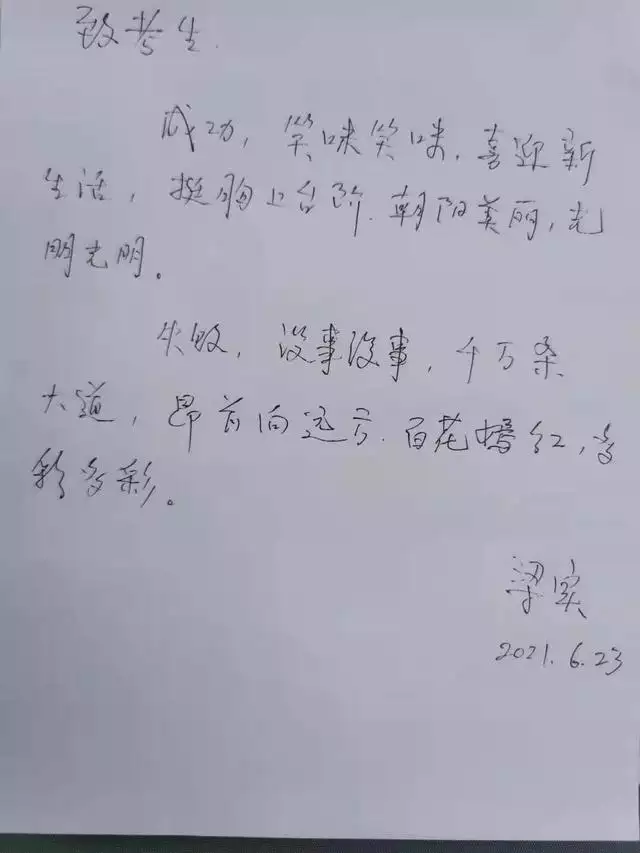 致考生
成功，笑咪笑咪，喜迎新
生活，挺胸上台阶．朝阳美丽，光
明光明。
失败，没事没事，千万条
大道，昂首向远方．百花嫣红，多
彩多彩。
梁实
2021.6.23